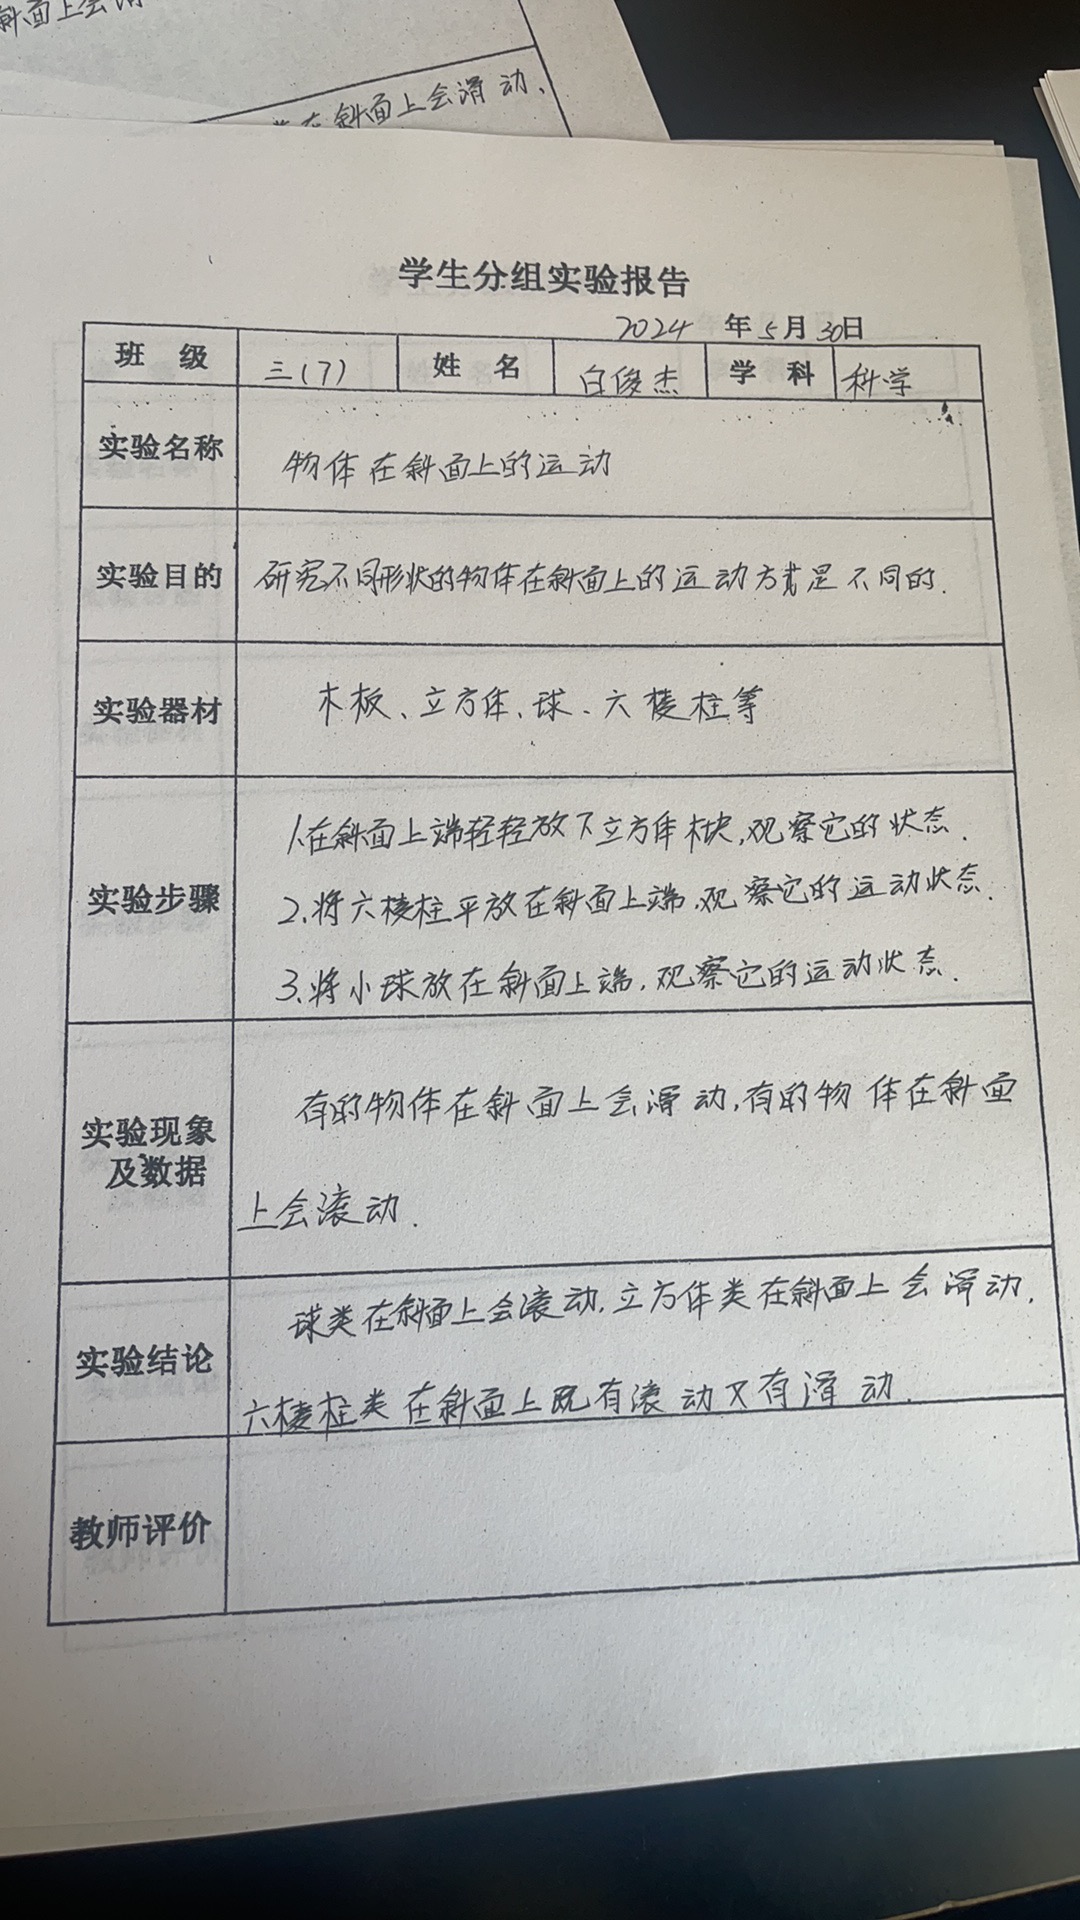 斜面上会滑
在斜面上会滑动、
学生分组实验报告
2024 年 5 月 30日
班 级 三(7) 姓 名 白俊杰 学 科 科学
实验名称 物体在斜面上的运动
实验目的 研究不同形状的物体在斜面上的运动方式是不同的.
实验器材 木板、立方体、球、六棱柱等
1.在斜面上端轻轻放下立方体木块,观察它的状态.
实验步骤 2.将六棱柱平放在斜面上端,观察它的运动状态.
3.将小球放在斜面上端,观察它的运动状态.
实验现象 有的物体在斜面上会滑动,有的物体在斜面
及数据 上会滚动.
球类在斜面上会滚动,立方体类在斜面上会滑动,
实验结论 六棱柱类在斜面上既有滚动又有滑动.
教师评价